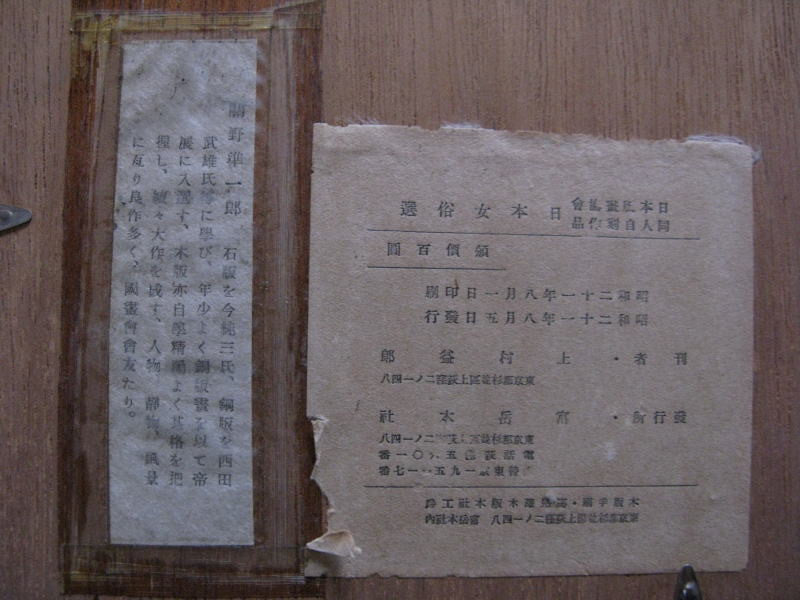 關野準一郎
石版を今純三氏、銅版を西田
武雄氏等に學び、年少よく銅版畫を以て帝
展に入選す、木版亦自學精勵よく其格を把
握し、數々大作を成す、人物、靜物、風景
に亙り良作多く、國畫會會友たり。
日本版畫協會
同人自刻作品
日本女俗選
頒價百圓
昭和二十一年八月一日印刷
昭和二十一年八月五日發行
刊者・上村益郎
東京都杉並區上荻窪二ノ一四八
發行所・富岳本社
東京都杉並區上荻窪二ノ一四八
電話荻窪五〇一〇番
東京一九五一一七番
木版手摺・高見澤木版社工房
東京都杉並區上荻窪二ノ一四八 富岳本社內